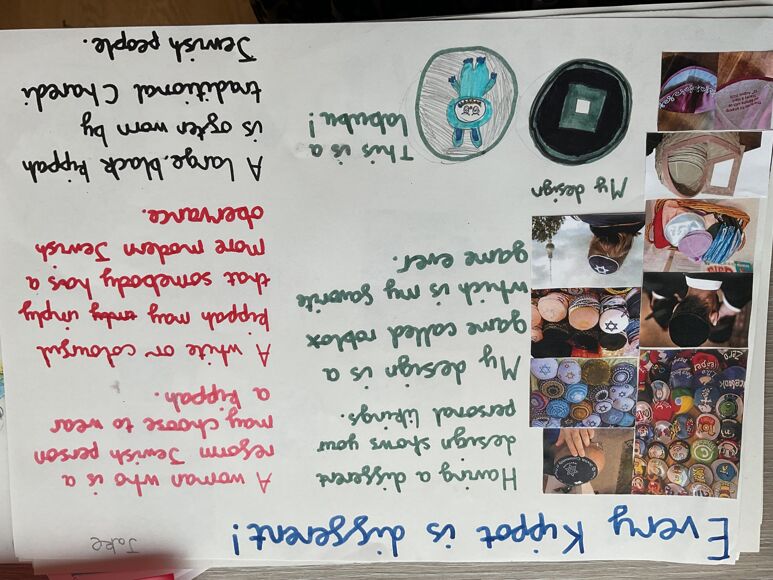 Every Kippot is different!
Jake
Having a different
design shows your
personal likings.
My design is a
game called roblox
which is my favorite
game ever.
My design
This is a
labubu!
A woman who is a
reform Jewish person
may choose to wear
a kippah.
A white or colourful
kippah may imply
that somebody has a
more modern Jewish
obervance.
A large, black kippah
is often worn by
traditional Charedi
Jewish people.